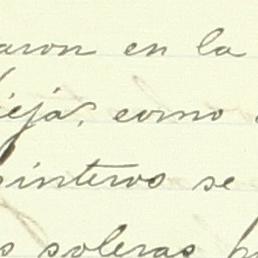 aron en la
ieja, como
pinteros se
s soleras